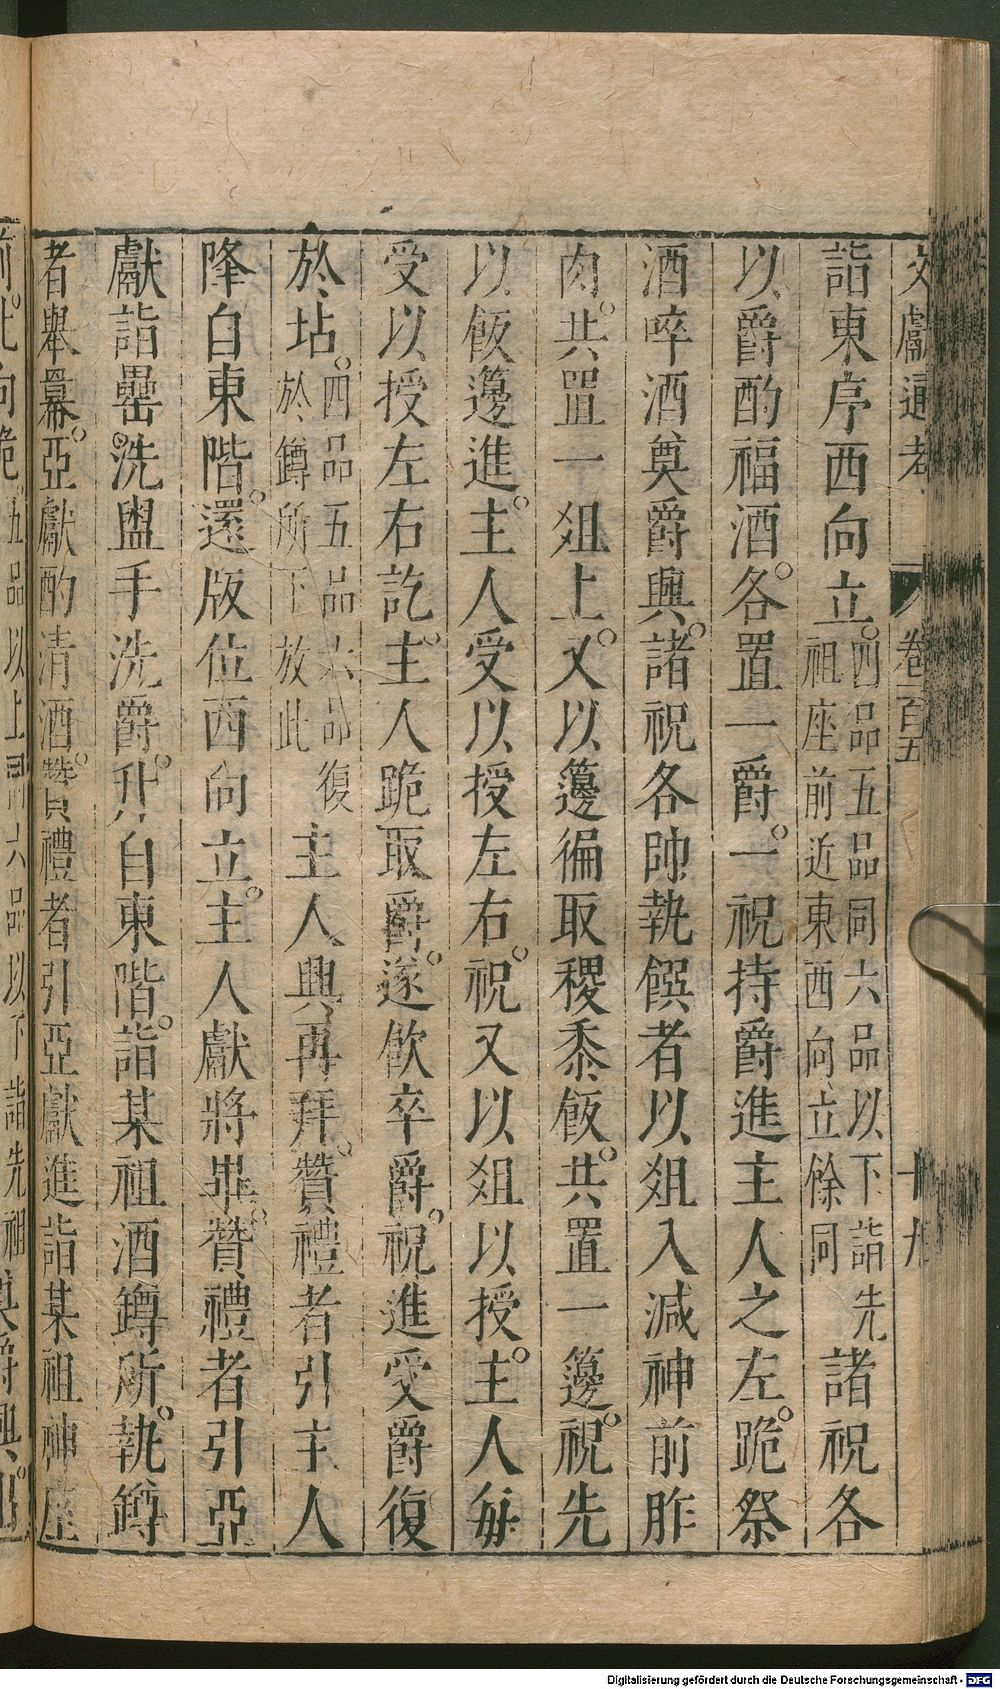 文獻通考 卷百五 十九
詣東序西向立。四品五品同六品以下詣先祖座前近東西向立餘同諸祝各
以爵酌福酒。各置一爵。一祝持爵進主人之左。跪祭
酒啐酒奠爵興。諸祝各帥執饌者以俎入減神前胙
肉。共置一俎上。又以籩徧取稷黍飯。共置一籩。祝先
以飯籩進。主人受以授左右。祝又以俎以授。主人每
受以授左右訖。主人跪取爵。遂飲卒爵。祝進受爵復
於坫。四品五品六品復於罇所下放此主人興再拜。贊禮者引主人
降自東階。還版位西向立。主人獻將畢。贊禮者引亞
獻詣罍洗。盥手洗爵。升自東階。詣某祖酒罇所。執罇
者舉羃。亞獻酌清酒。贊禮者引亞獻進詣某祖神座
前北向跪。五品以上同六品以下詣先祖奠爵興。
Digitalisierung gefördert durch die Deutsche Forschungsgemeinschaft - DFG